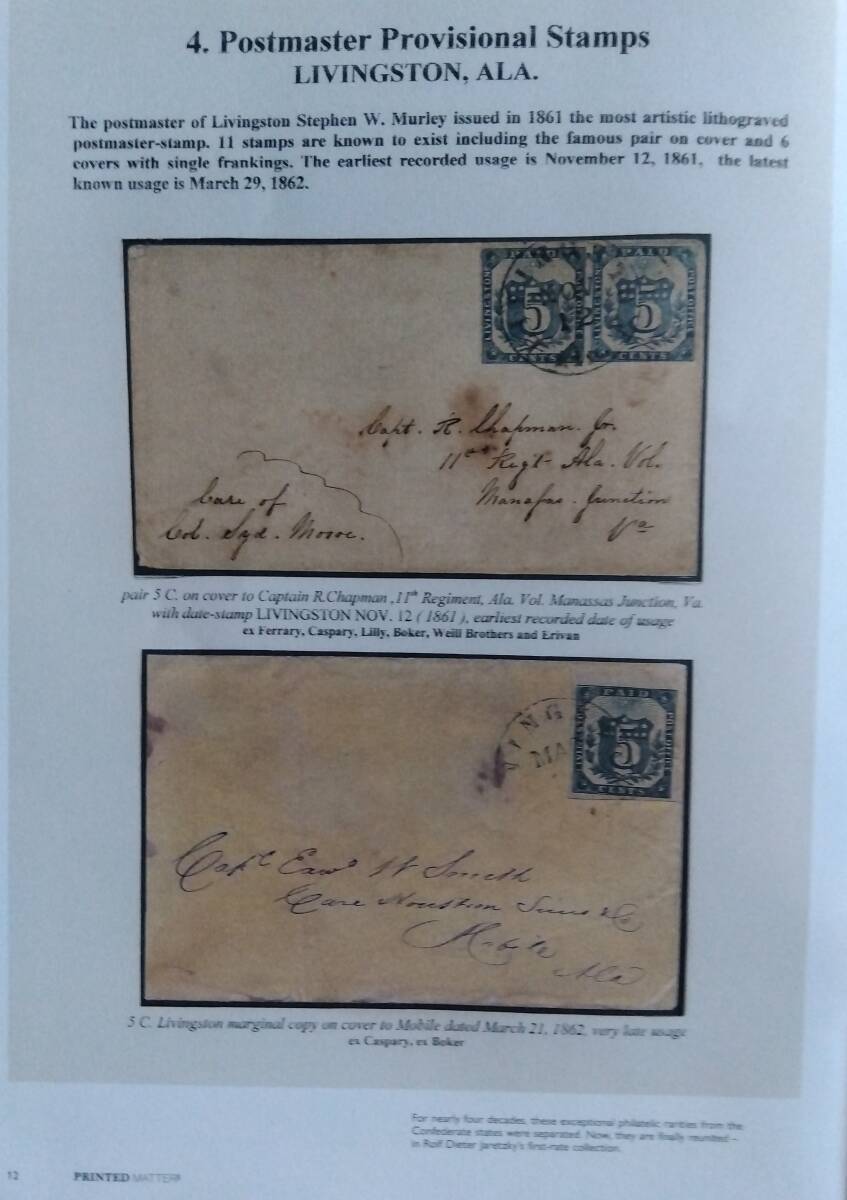 4. Postmaster Provisional Stamps
LIVINGSTON, ALA.
The postmaster of Livingston Stephen W. Murley issued in 1861 the most artistic lithograved
postmaster-stamp. 11 stamps are known to exist including the famous pair on cover and 6
covers with single frankings. The earliest recorded usage is November 12, 1861, the latest
known usage is March 29, 1862.
PAID PAID
LIVINGSTON 5 POST OFFICE LIVINGSTON 5 POST OFFICE
12
CENTS CENTS
Capt. R. Chapman. Jr.
11th Regt Ala. Vol.
Manasas. Junction
Va
Care of
Col. Syd. Moore.
pair 5 C. on cover to Captain R.Chapman ,11th Regiment, Ala. Vol. Manassas Junction, Va.
with date-stamp LIVINGSTON NOV. 12 ( 1861 ), earliest recorded date of usage
ex Ferrary, Caspary, Lilly, Boker, Weill Brothers and Erivan
PAID
LIVINGSTON 5 POST OFFICE
CENTS
VING
MA
Capt Edwd W Smith
Care Houston Sims & Co
Mobile
Ala
5 C. Livingston marginal copy on cover to Mobile dated March 21, 1862, very late usage
ex Caspary, ex Boker
For nearly four decades, these exceptional philatelic rarities from the
Confederate states were separated. Now, they are finally reunited –
in Rolf Dieter Jaretzky's first-rate collection.
12 PRINTED MATTER